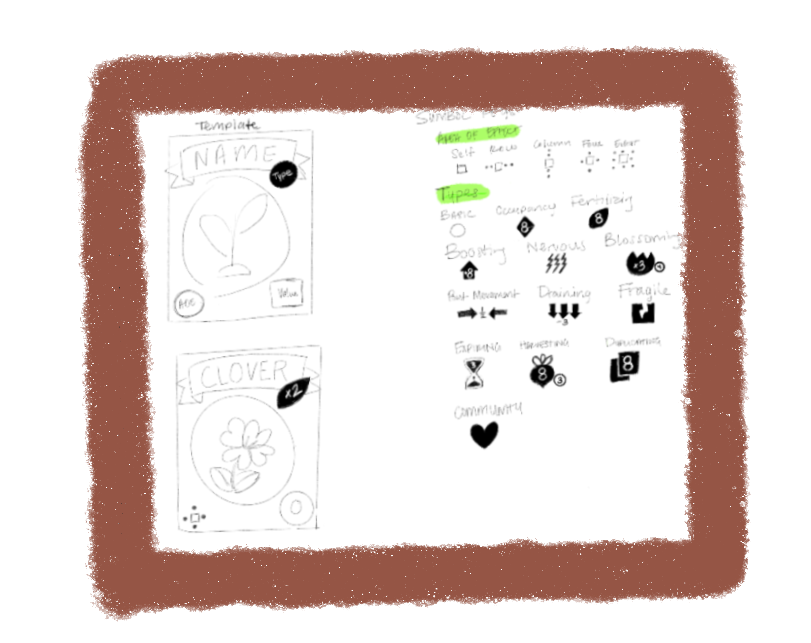 Template
NAME
Type
AOE
Value
CLOVER
x2
0
Symbol
AREA OF EFFECT
Self
Row
Column
Four
Types
BASIC
Occupancy
8
Fertilizing
8
Boosting
8
Nervous
Blossoming
x3
Movement
Draining
-3
Fragile
EXPIRING
3
HARVESTING
8
3
DUPLICATING
8
COMMUNITY